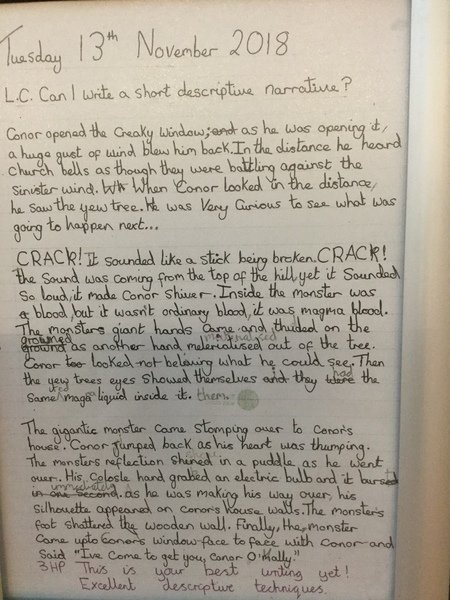 Tuesday 13th November 2018
L.C. Can I write a short descriptive narrative?
Conor opened the Creaky window, and as he was opening it,
a huge gust of wind blew him back. In the distance he heard
church bells as though they were battling against the
sinister wind. Wh When Conor looked in the distance,
he saw the yew tree. He was Very Curious to see what was
going to happen next...
CRACK! It sounded like a stick being broken. CRACK!
the Sound was coming from the top of the hill, yet it Sounded
So loud, it made Conor Shiver. Inside the monster was
a blood, but it wasn't ordinary blood, it was magma blood.
The monsters giant hands Came and thudded on the
growned
ground as another hand materialised out of the tree.
Conor too looked, not believing what he could see. Then
the yew trees eyes Showed themselves and they were had the
same magma liquid inside it. them.
The gigantic monster came Stomping over to Conor's
house. Conor jumped back as his heart was thumping.
The monsters reflection Shined in a puddle as he went
over. His Colosle hand grabed an electric bulb and it bursed
immediately
in one second. as he was making his way over, his
Silhouette appeared on conor's house walls. The monster's
foot Shattered the wooden wall. Finally, the monster
Came upto Conor's window face to face with Conor and
Said "I've Come to get you, Conor O'Mally"
3HP This is your best writing yet!
Excellent descriptive techniques.